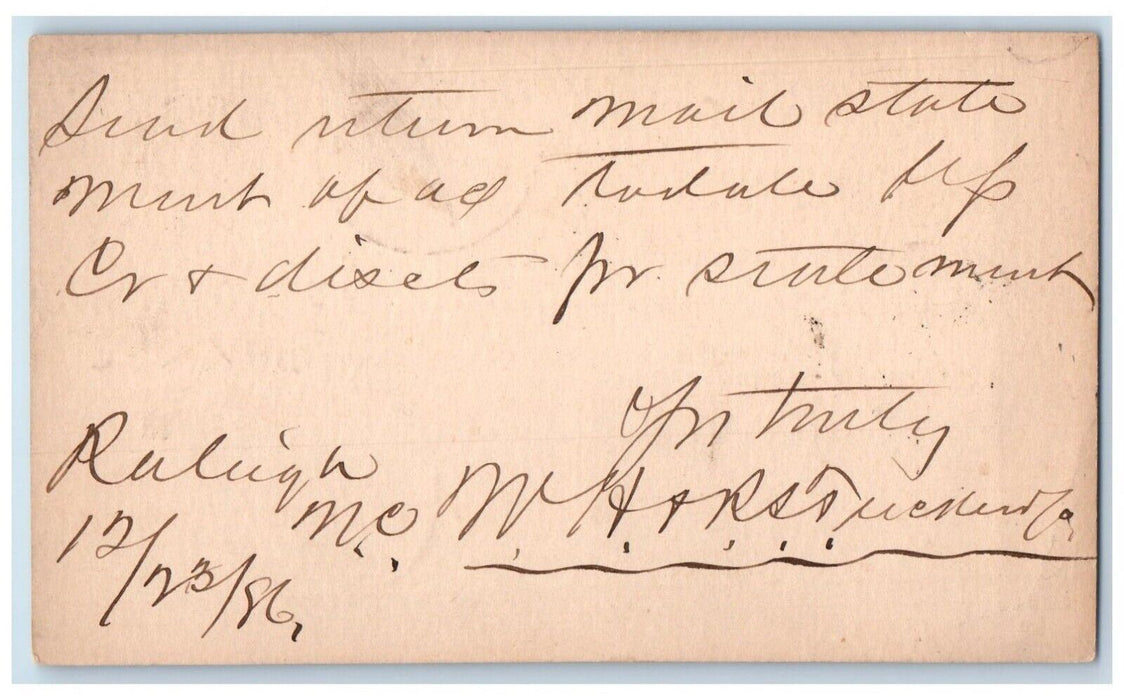 Send return mail state
ment of ac to date
Cr & discts for statement
Yrs truly
Raleigh W. H. & R. S. Tucker & Co.
N.C.
12/23/86.